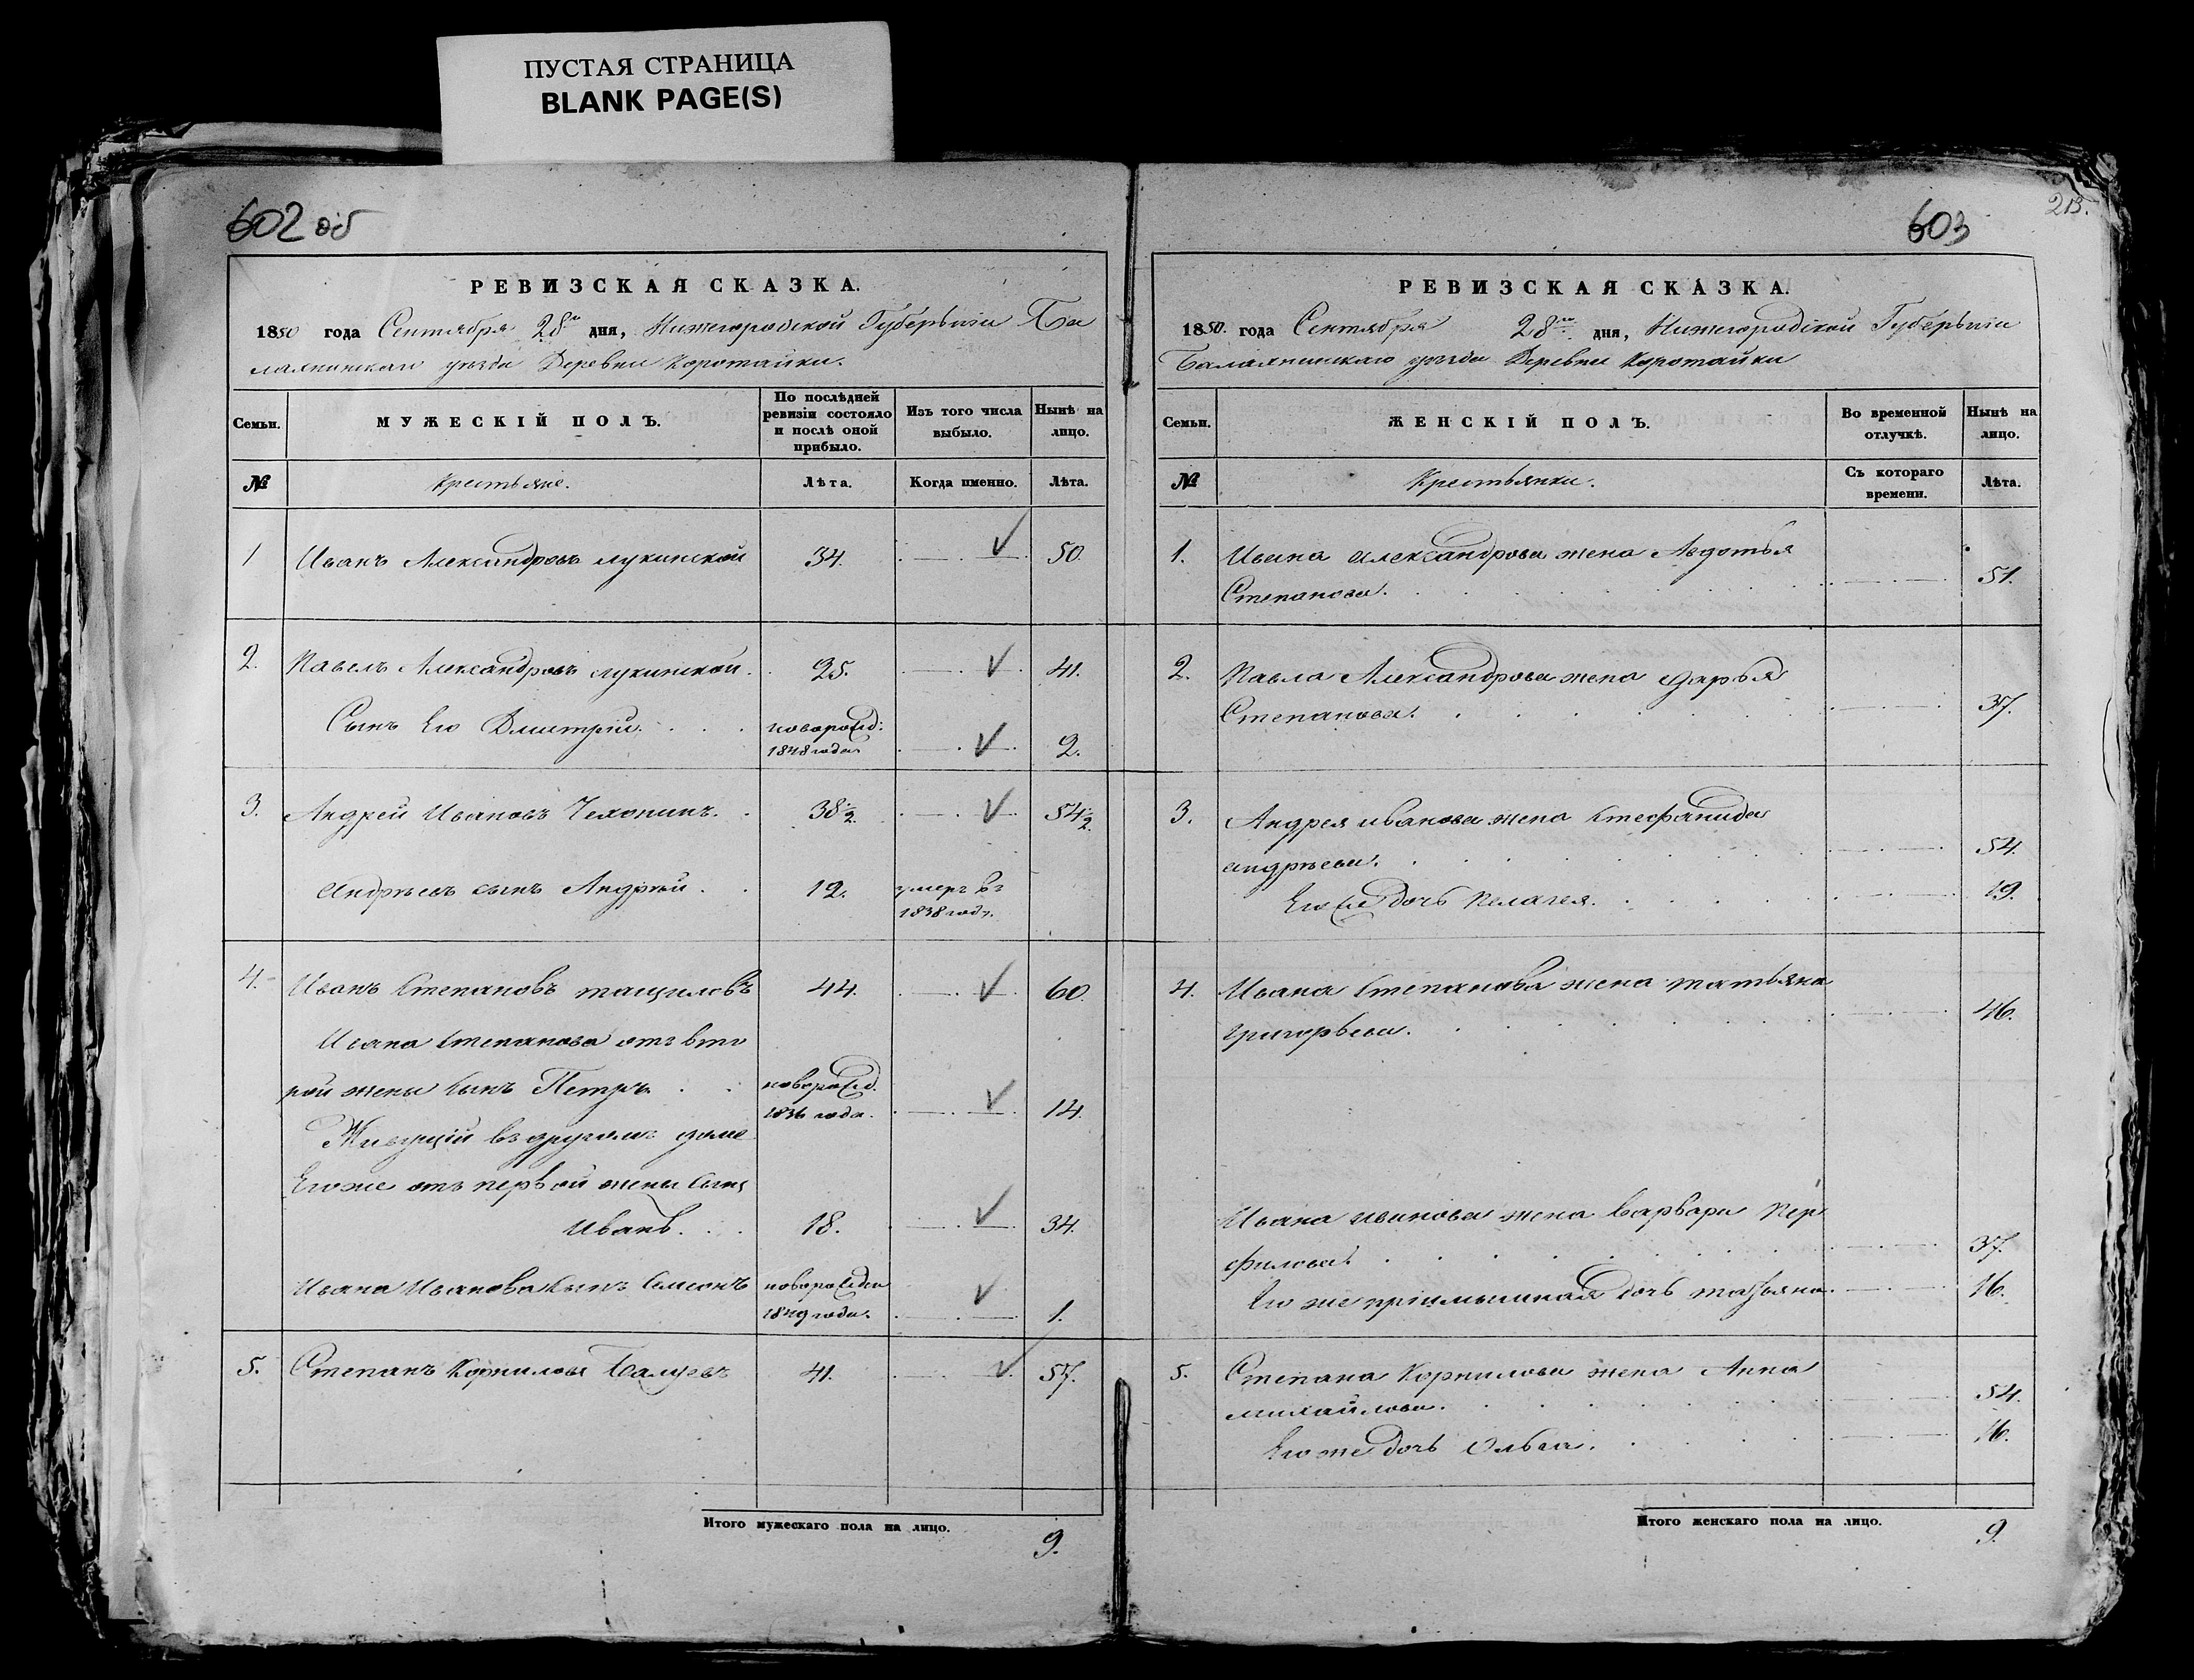 ПУСТАЯ СТРАНИЦА
BLANK PAGE(S)
602 об
РЕВИЗСКАЯ СКАЗКА.
1850 года Сентября 28го дня, Нижегородской Губернiи Ба
лахнинскаго уѣзда Деревни Коротайки.
Семьи.
МУЖЕСКIЙ ПОЛЪ.
По послѣдней ревизiи состояло и послѣ оной прибыло.
Изъ того числа выбыло.
Нынѣ на лицо.
№
Крестьяне.
Лѣта.
Когда именно.
Лѣта.
1 Иванъ Александровъ лукинской 34. 50.
2. Павелъ Александровъ лукинской. 25. 41.
Сынъ Его Дмитрiй. новорожд: 1848 года 2.
3. Андрей Ивановъ Чехонинъ. 38 1/2. 54 1/2.
Андрѣевъ сынъ Андрей. 12. умеръ въ 1838 году.
4. Иванъ Степановъ тащиловъ 44. 60.
Ивана Степанова отъ вто
рой жены сынъ Петръ. новорожд. 1836 года. 14.
Живущiй въ другомъ доме
Его же отъ первой жены сынъ
Иванъ. 18. 34.
Ивана Иванова сынъ новорожден 1849 года. 1.
5. Степанъ Корниловъ 41. 57.
Итого мужескаго пола на лицо.
9.
213.
603
РЕВИЗСКАЯ СКАЗКА.
1850. года Сентября 28го дня, Нижегородской Губернiи
Балахнинскаго уѣзда Деревни Коротайки
Семьи.
ЖЕНСКIЙ ПОЛЪ.
Во временной отлучкѣ.
Нынѣ на лицо.
№
Крестьянки.
Съ котораго времени.
Лѣта.
1. Ивана Александрова жена Авдотья
Степанова. 51.
2. Павла Александрова жена дарья
Степанова. 37.
3. Андрея иванова жена Стефанида
андрѣева. 54.
Его же дочь Пелагея. 19.
4. Ивана Степанова жена татьяна
григорьева. 46.
Ивана иванова жена варвара Пер
филова. 37.
Его же прiимышная дочь татьяна. 16.
5. Степана Корнилова жена Анна
михайлова. 54.
Его же дочь Ольга. 16.
Итого женскаго пола на лицо.
9.